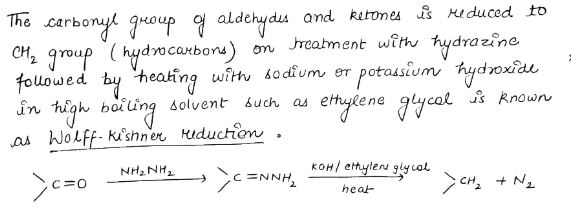 The carbonyl group of aldehydes and ketones is reduced to
CH₂ group (hydrocarbons) on treatment with hydrazine
followed by heating with sodium or potassium hydroxide
in high boiling solvent such as ethylene glycol is known
as Wolff-Kishner reduction.
>C=O NH₂NH₂ → >C=NNH₂ KOH/ethylene glycol heat → >CH₂ + N₂